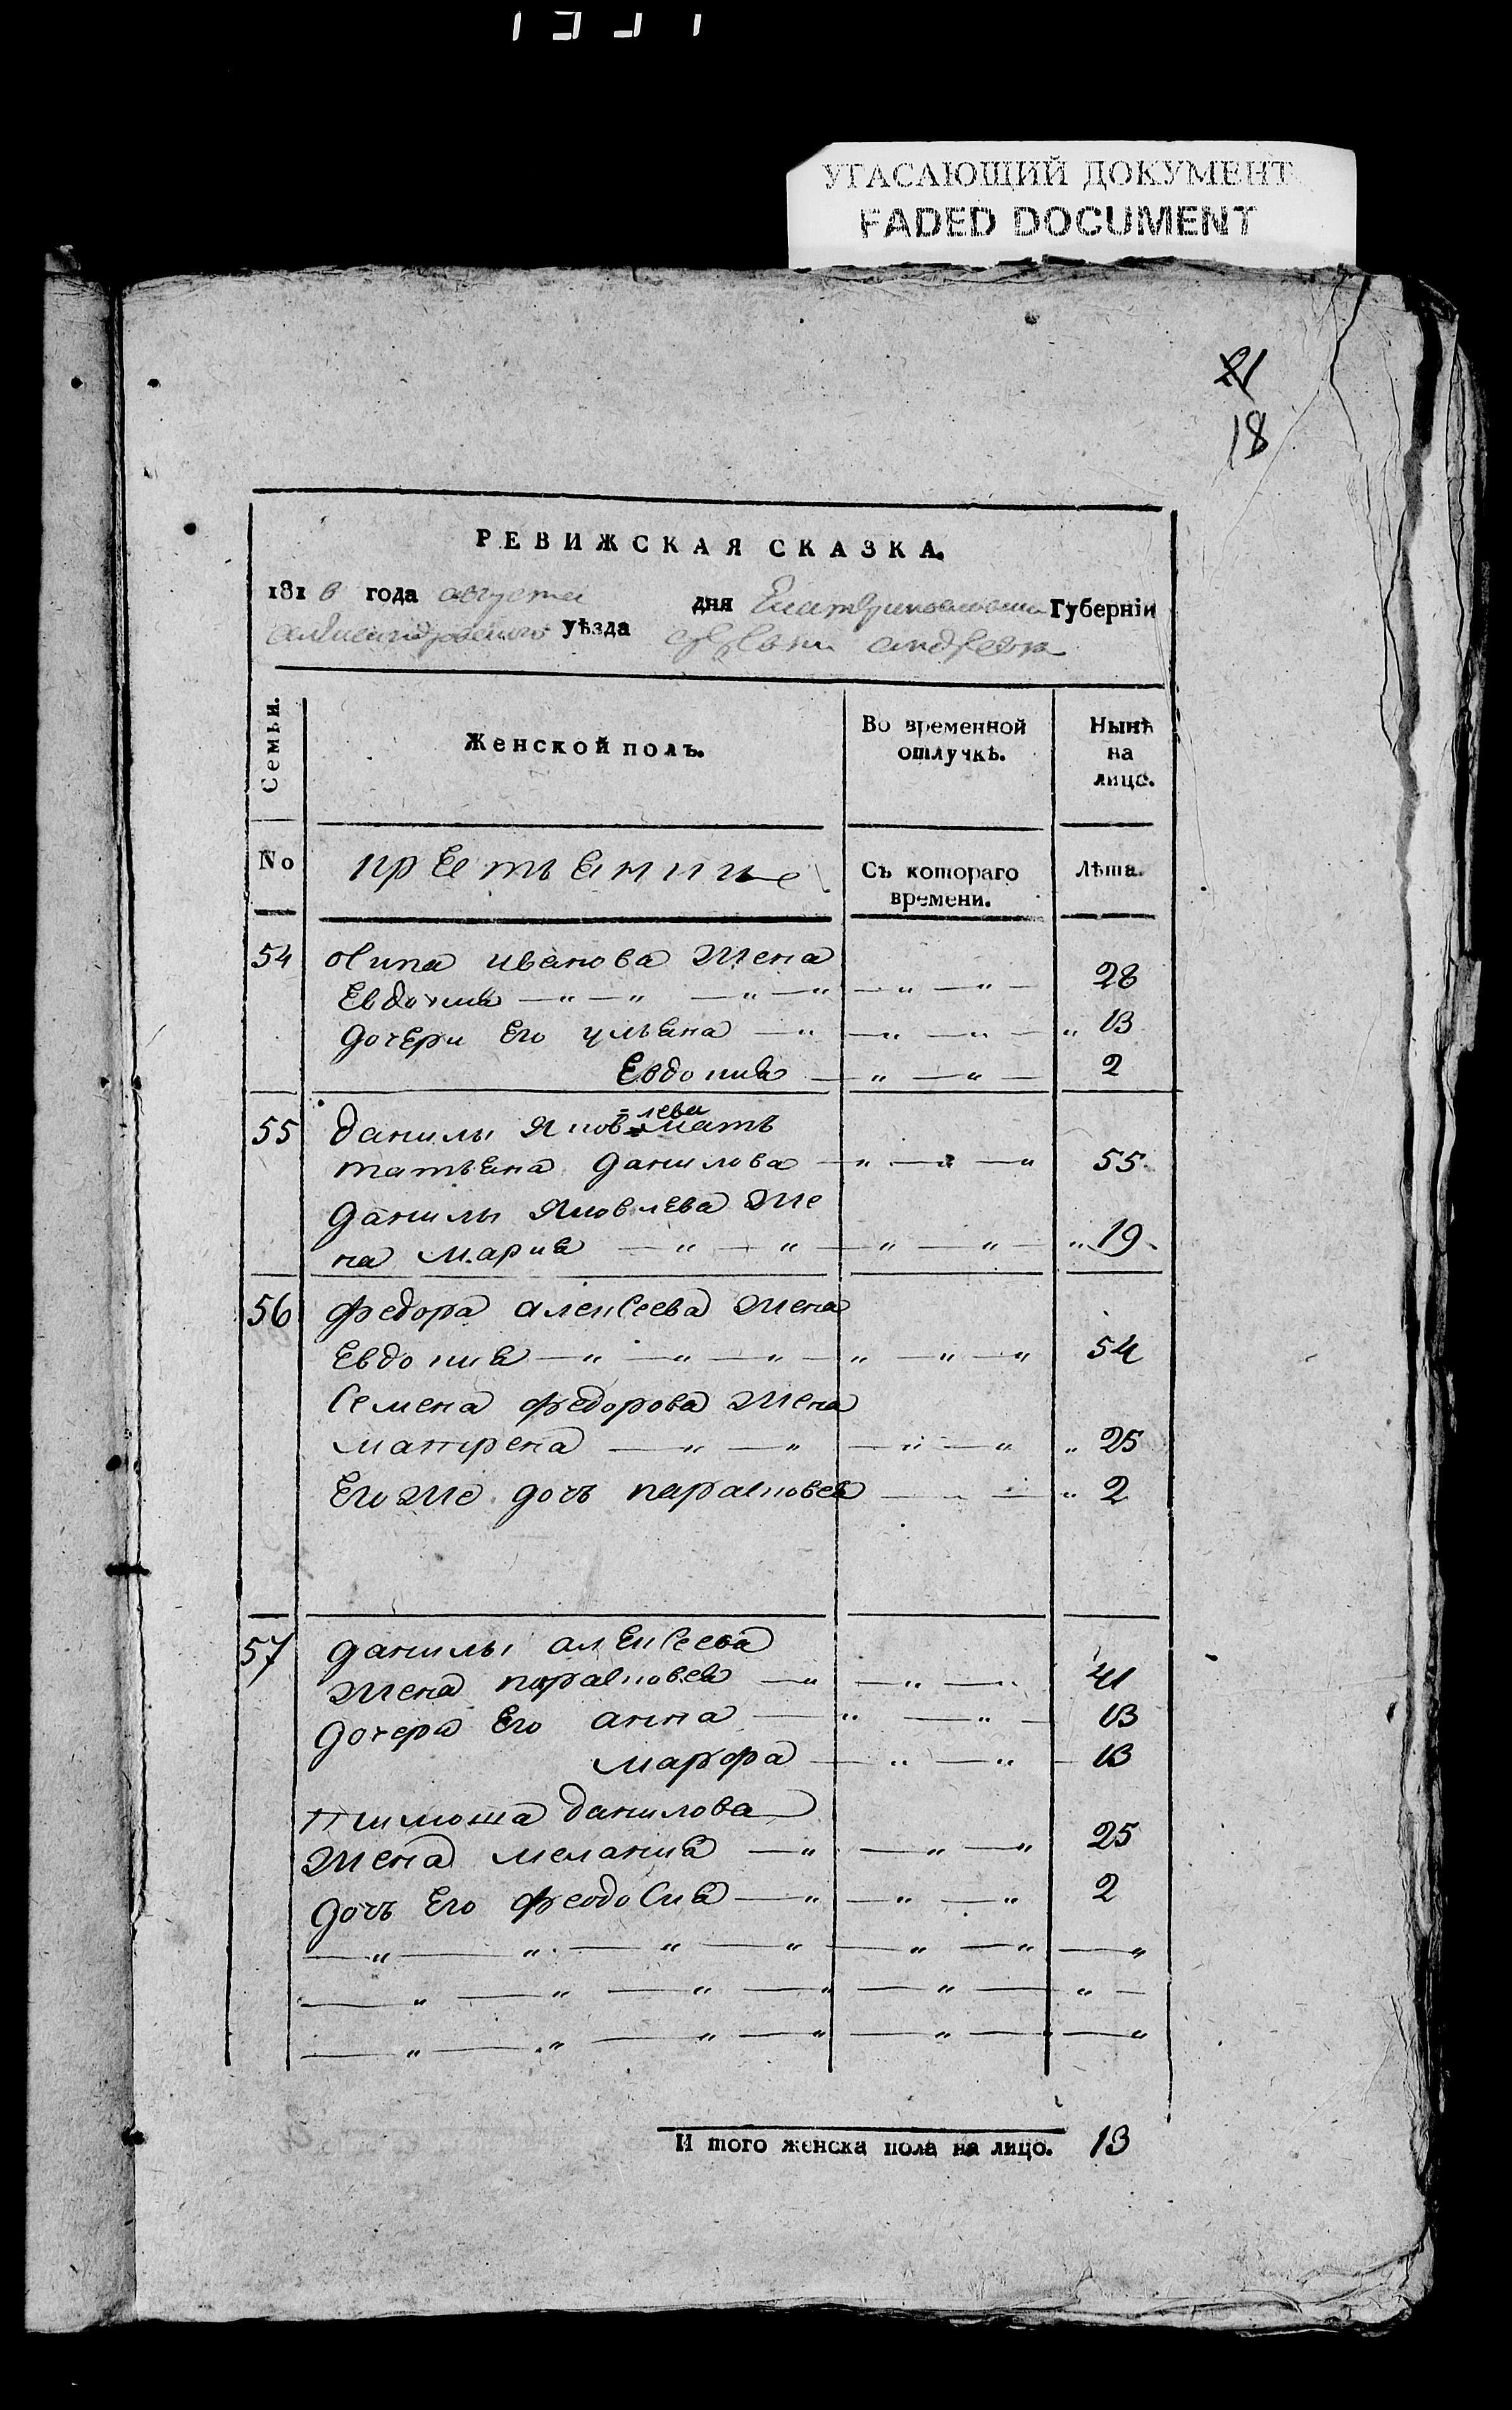 УГАСАЮЩИЙ ДОКУМЕНТ
FADED DOCUMENT
21
18
РЕВИЖСКАЯ СКАЗКА.
181 6 года августа дня Екатеринославской Губерніи
александровского уѣзда андреевк
Семьи.
Женской полъ.
Во временной отлучкѣ.
Нынѣ на лицо.
No
крестьянские
Съ котораго времени.
Лѣта.
54 осипа иванова жена
Евдокия 28
дочери Его ульяна 13
Евдокия 2
55 данилы Яков=лева мать
татьяна данилова 55
данилы Яковлева же
на Мария 19
56 федора алексеева жена
Евдокия 54
Семена федорова жена
матрена 25
Его же дочь парасковея 2
57 данилы алексеева
жена парасковея 41
дочери Его анна 13
марфа 13
тимоша данилова
жена мелания 25
дочь Его феодосия 2
И того женска пола на лицо. 13